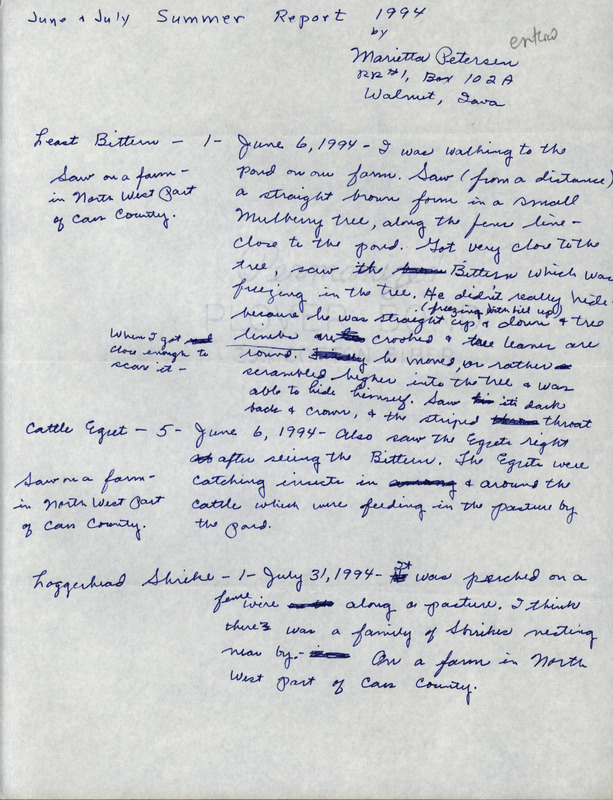 June & July Summer Report 1994
by
entered
Marietta Petersen
RR#1, Box 102A
Walnut, Iowa
Least Bittern - 1 - June 6, 1994 - I was walking to the
Saw on a farm -
in North West Part
of Cass County.
pond on our farm. Saw (from a distance)
a straight brown form in a small
Mulberry tree, along the fence line -
close to the pond. Got very close to the
tree, saw the Bittern which was
freezing in the tree. He didn't really hide -
(freezing with bill up)
because he was straight up & down & tree
limbs are crooked & tree leaves are
When I got
close enough to
scare it -
round. he moved, or rather
scrambled higher into the tree & was
able to hide himself. Saw its dark
back & crown, & the striped throat
Cattle Egret - 5 - June 6, 1994 - Also saw the Egrets right
Saw on a farm -
in North West Part
of Cass County.
after seeing the Bittern. The Egrets were
catching insects in & around the
cattle which were feeding in the pasture by
the pond.
Loggerhead Shrike - 1 - July 31, 1994 - It was perched on a
fence wire along a pasture. I think
there's was a family of Shrikes nesting
near by. - On a farm in North
West part of Cass County.